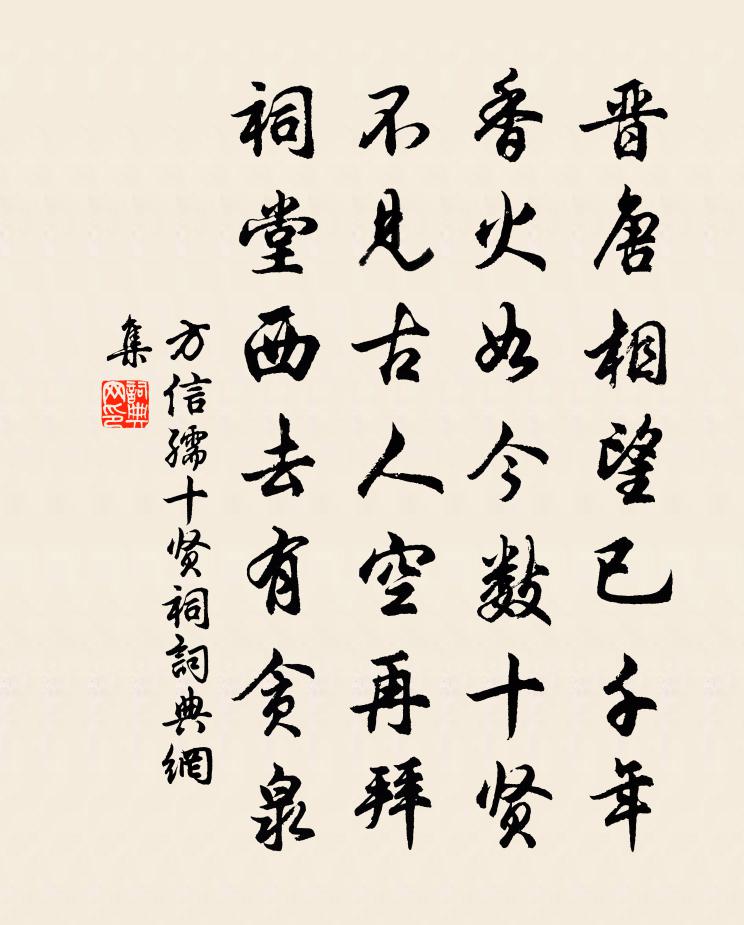 晋唐相望已千年
香火如今数十贤
不见古人空再拜
祠堂西去有贪泉
方信孺十贤祠詞典網
集
詞典
网印